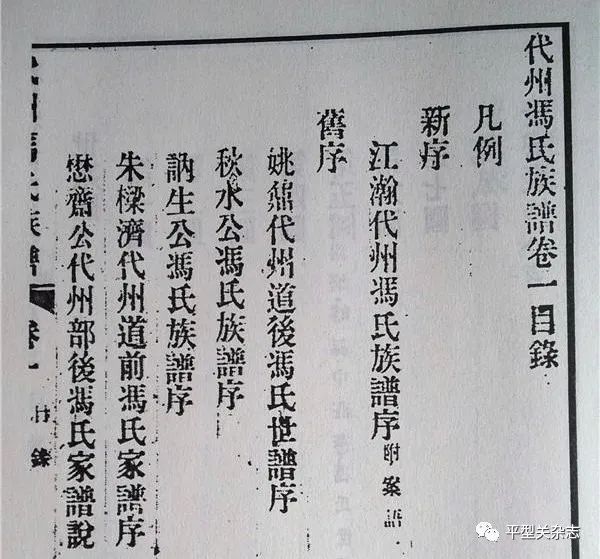 代州馮氏族譜卷一目錄
凡例
新序
江瀚代州馮氏族譜序 附案語
舊序
姚鼐代州道後馮氏世譜序
秋水公馮氏族譜序
訥生公馮氏族譜序
朱櫟濟代州道前馮氏家譜序
懋齋公代州部後馮氏家譜說
代州馮氏族譜 卷一 目錄
平型关杂志